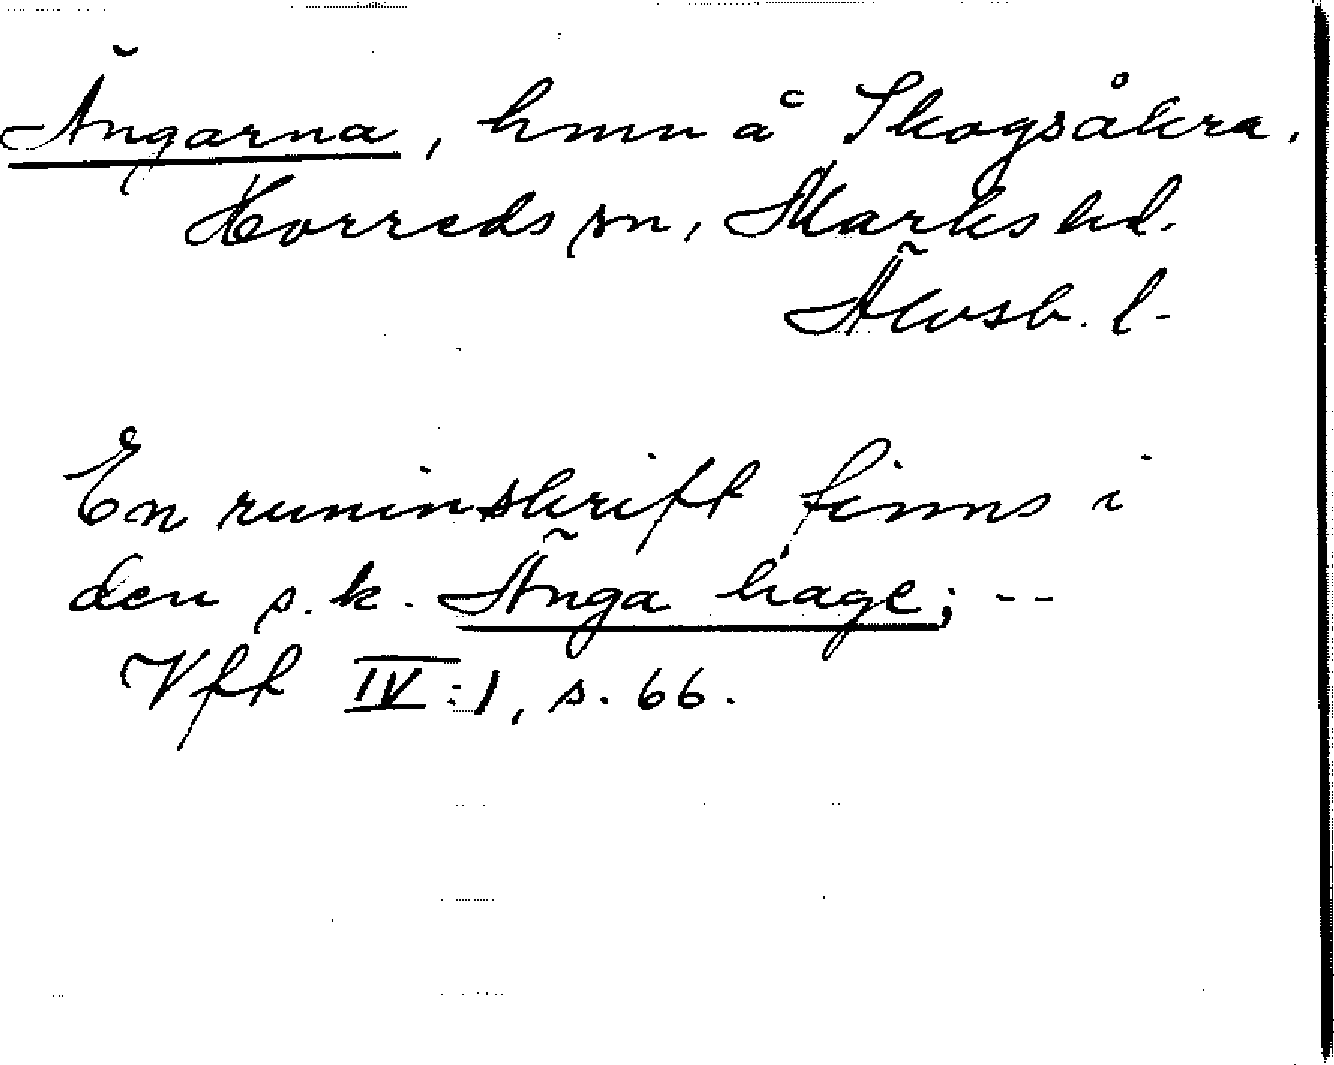 Ängarna, hmn å Skogsåkra.
Horreds sn, Marks hd.
Älvsb. l.
En runinskrift finns i
den s.k. Änga hage; --
Vff IV:1, s. 66.